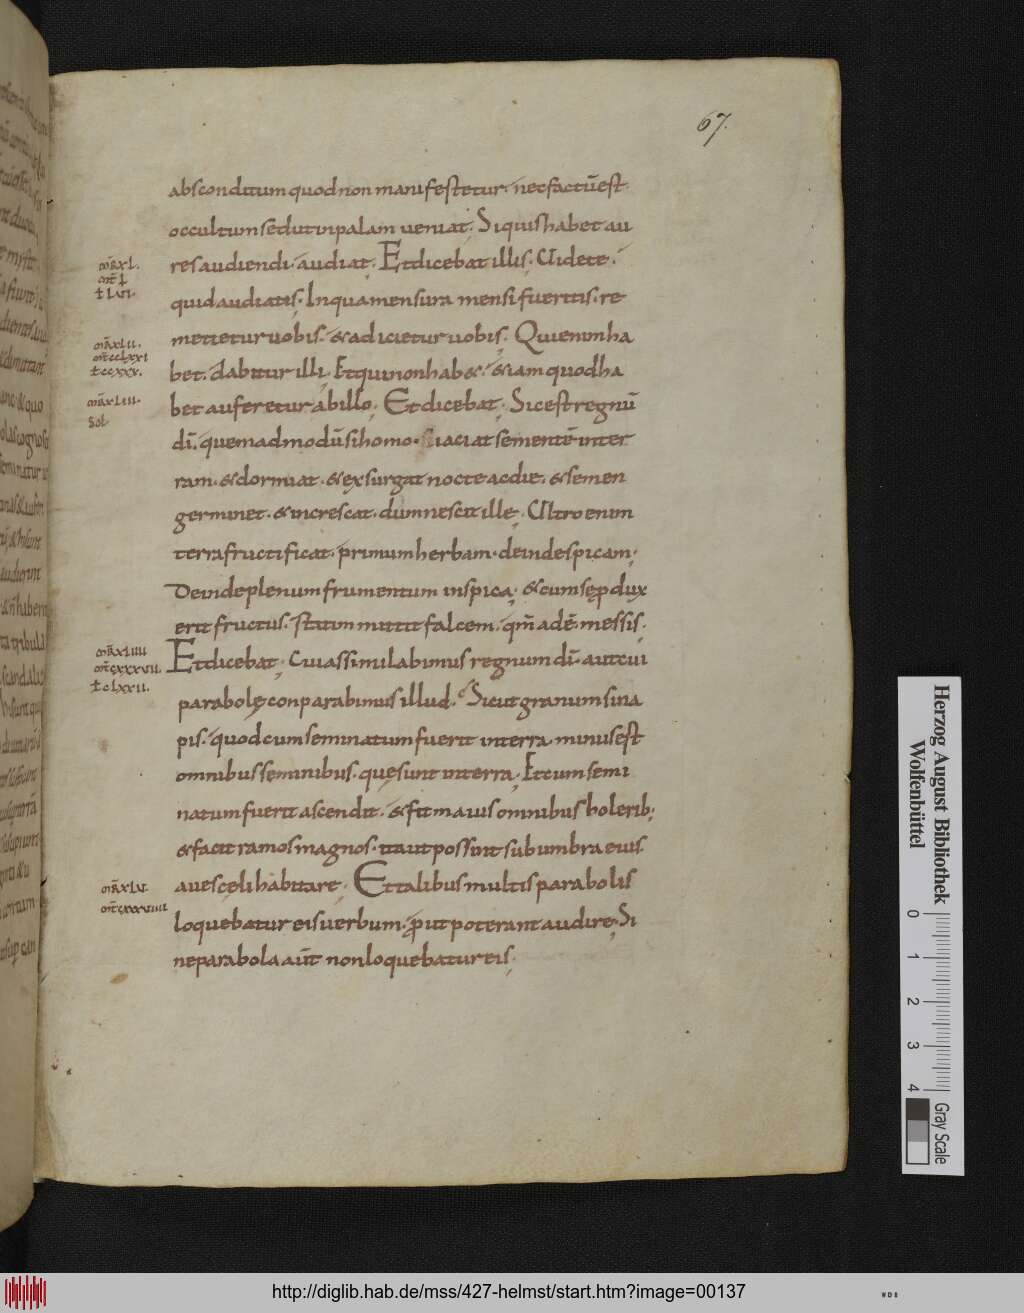 67.
absconditum quod non manifestetur. nec factū est
occultum sed ut in palam ueniat. Si quis habet au
res audiendi. audiat. Et dicebat illis. Uidete.
quid audiatis. In qua mensura mensi fueritis. re
metietur uobis. & adicietur uobis. Qui enim ha
bet. dabitur illi. Et qui non hab&. &iam quod ha
bet auferetur ab illo. Et dicebat. Sic est regnū
dī. quemadmodū si homo iaciat sementē in ter
ram. & dormiat. & exsurgat nocte ac die. & semen
germinet. & increscat. dum nescit ille. Ultro enim
terra fructificat. primum herbam. deinde spicam.
Deinde plenum frumentum in spica. & cum se ꝓdux
erit fructus. statim mittit falcem. qm̄ adē. messis.
Et dicebat. Cui assimilabimus regnum dī. aut cui
parabolę conparabimus illud. Sicut granum sina
pis. quod cum seminatum fuerit in terra minus est
omnibus seminibus. quę sunt in terra. Et cum semi
natum fuerit ascendit. & fit maius omnibus holerib;
& facit ramos magnos. ita ut possint sub umbra eius
aues cęli habitare. Et talibus multis parabolis
loquebatur eis uerbum. ꝓut poterant audire. Si
ne parabola aūt non loquebatur eis.
mr̄ xl.
mt̄ l
ł lvi.
mr̄ xlii.
mt̄ cclxxi
ł ccxxx.
mr̄ xliii.
Sol.
mr̄ xliiii
mt̄ cxxxvii.
ł clxxii.
mr̄ xlv.
mt̄ cxxxviiii
Herzog August Bibliothek
Wolfenbüttel
0 1 2 3 4
Gray Scale
http://diglib.hab.de/mss/427-helmst/start.htm?image=00137